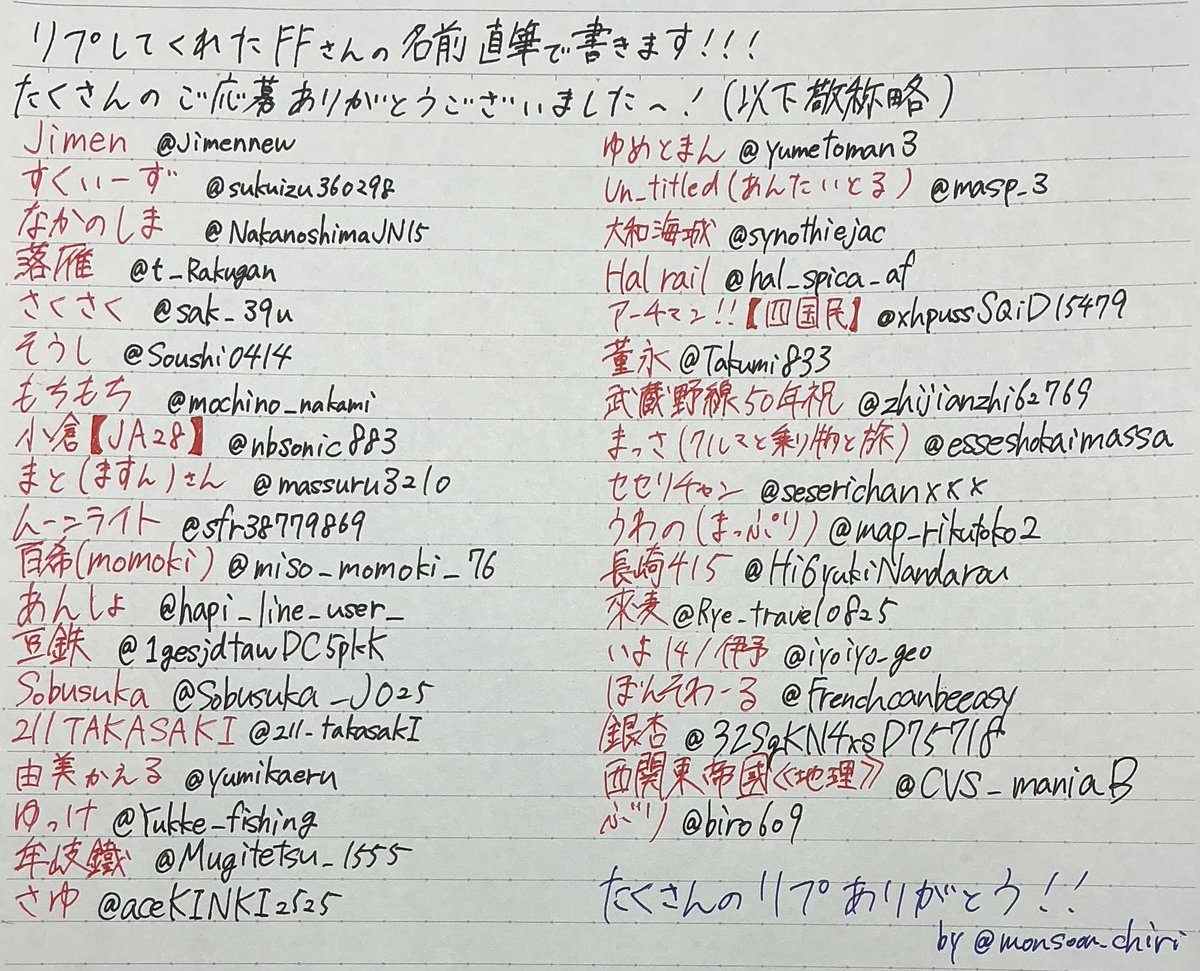 リプしてくれたFFさんの名前直筆で書きます!!!
たくさんのご応募ありがとうございました〜!(以下敬称略)
Jimen @Jimennew
すくぃーず @sukuizu360298
なかのしま @NakanoshimaJN15
落雁 @t_Rakugan
さくさく @sak_39u
そうし @Soushi0414
もちもち @mochino_nakami
小倉【JA28】 @nbsonic883
まと(ますん)さん @massuru3210
ムーンライト @sfr38779869
百希(momoki) @miso_momoki_76
あんしょ @hapi_line_user_
豆鉄 @1gesjdtawDC5pkK
Sobusuka @Sobusuka_J025
211TAKASAKI @211_takasakI
由美かえる @yumikaeru
ゆっけ @Yukke_fishing
牟岐鐵 @Mugitetsu_1555
さゆ @aceKINKI2525
ゆめとまん @yumetoman3
Un_titled(あんたいとる) @masp_3
大和海城 @synothiejac
Hal rail @hal_spica_af
アーチマン!!【四国民】 @xhpussSQiD15479
董永 @Takumi833
武蔵野線50年祝 @zhijianzhi62769
まっさ(クルマと乗り物と旅) @esseshokaimassa
セセリチャン @seserichanxxx
うわの(まっぷり) @map_rikutoko2
長崎415 @Hi6yukiNandarou
來麦 @Rye_travel0825
いよ14/伊予 @iyoiyo_geo
ぼんそわーる @Frenchcanbeeasy
銀杏 @32SgKN4xsD75718
西関東帝國《地理》 @CVS_maniaB
ぶり @biro609
たくさんのリプありがとう!!
by @monsoon_chiri